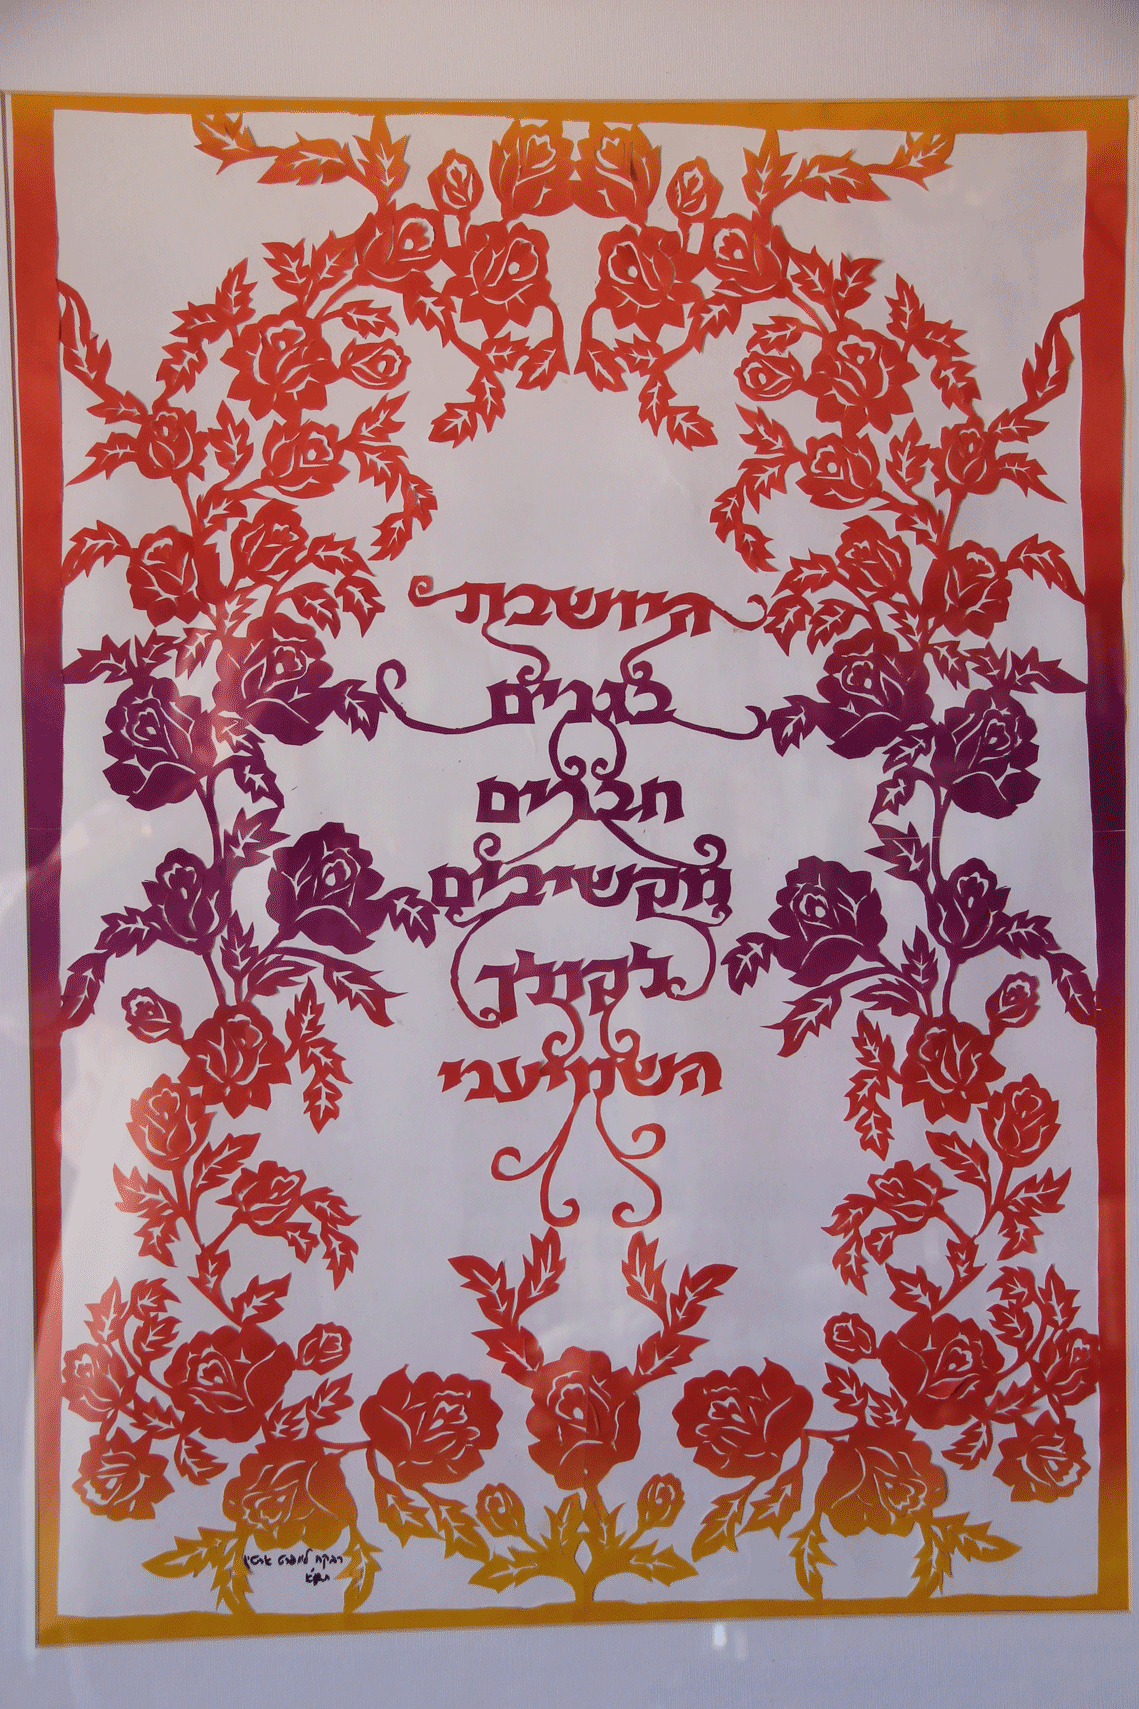 היושבת
בגנים
חברים
מקשיבים
לקולך
השמיעני
רבקה